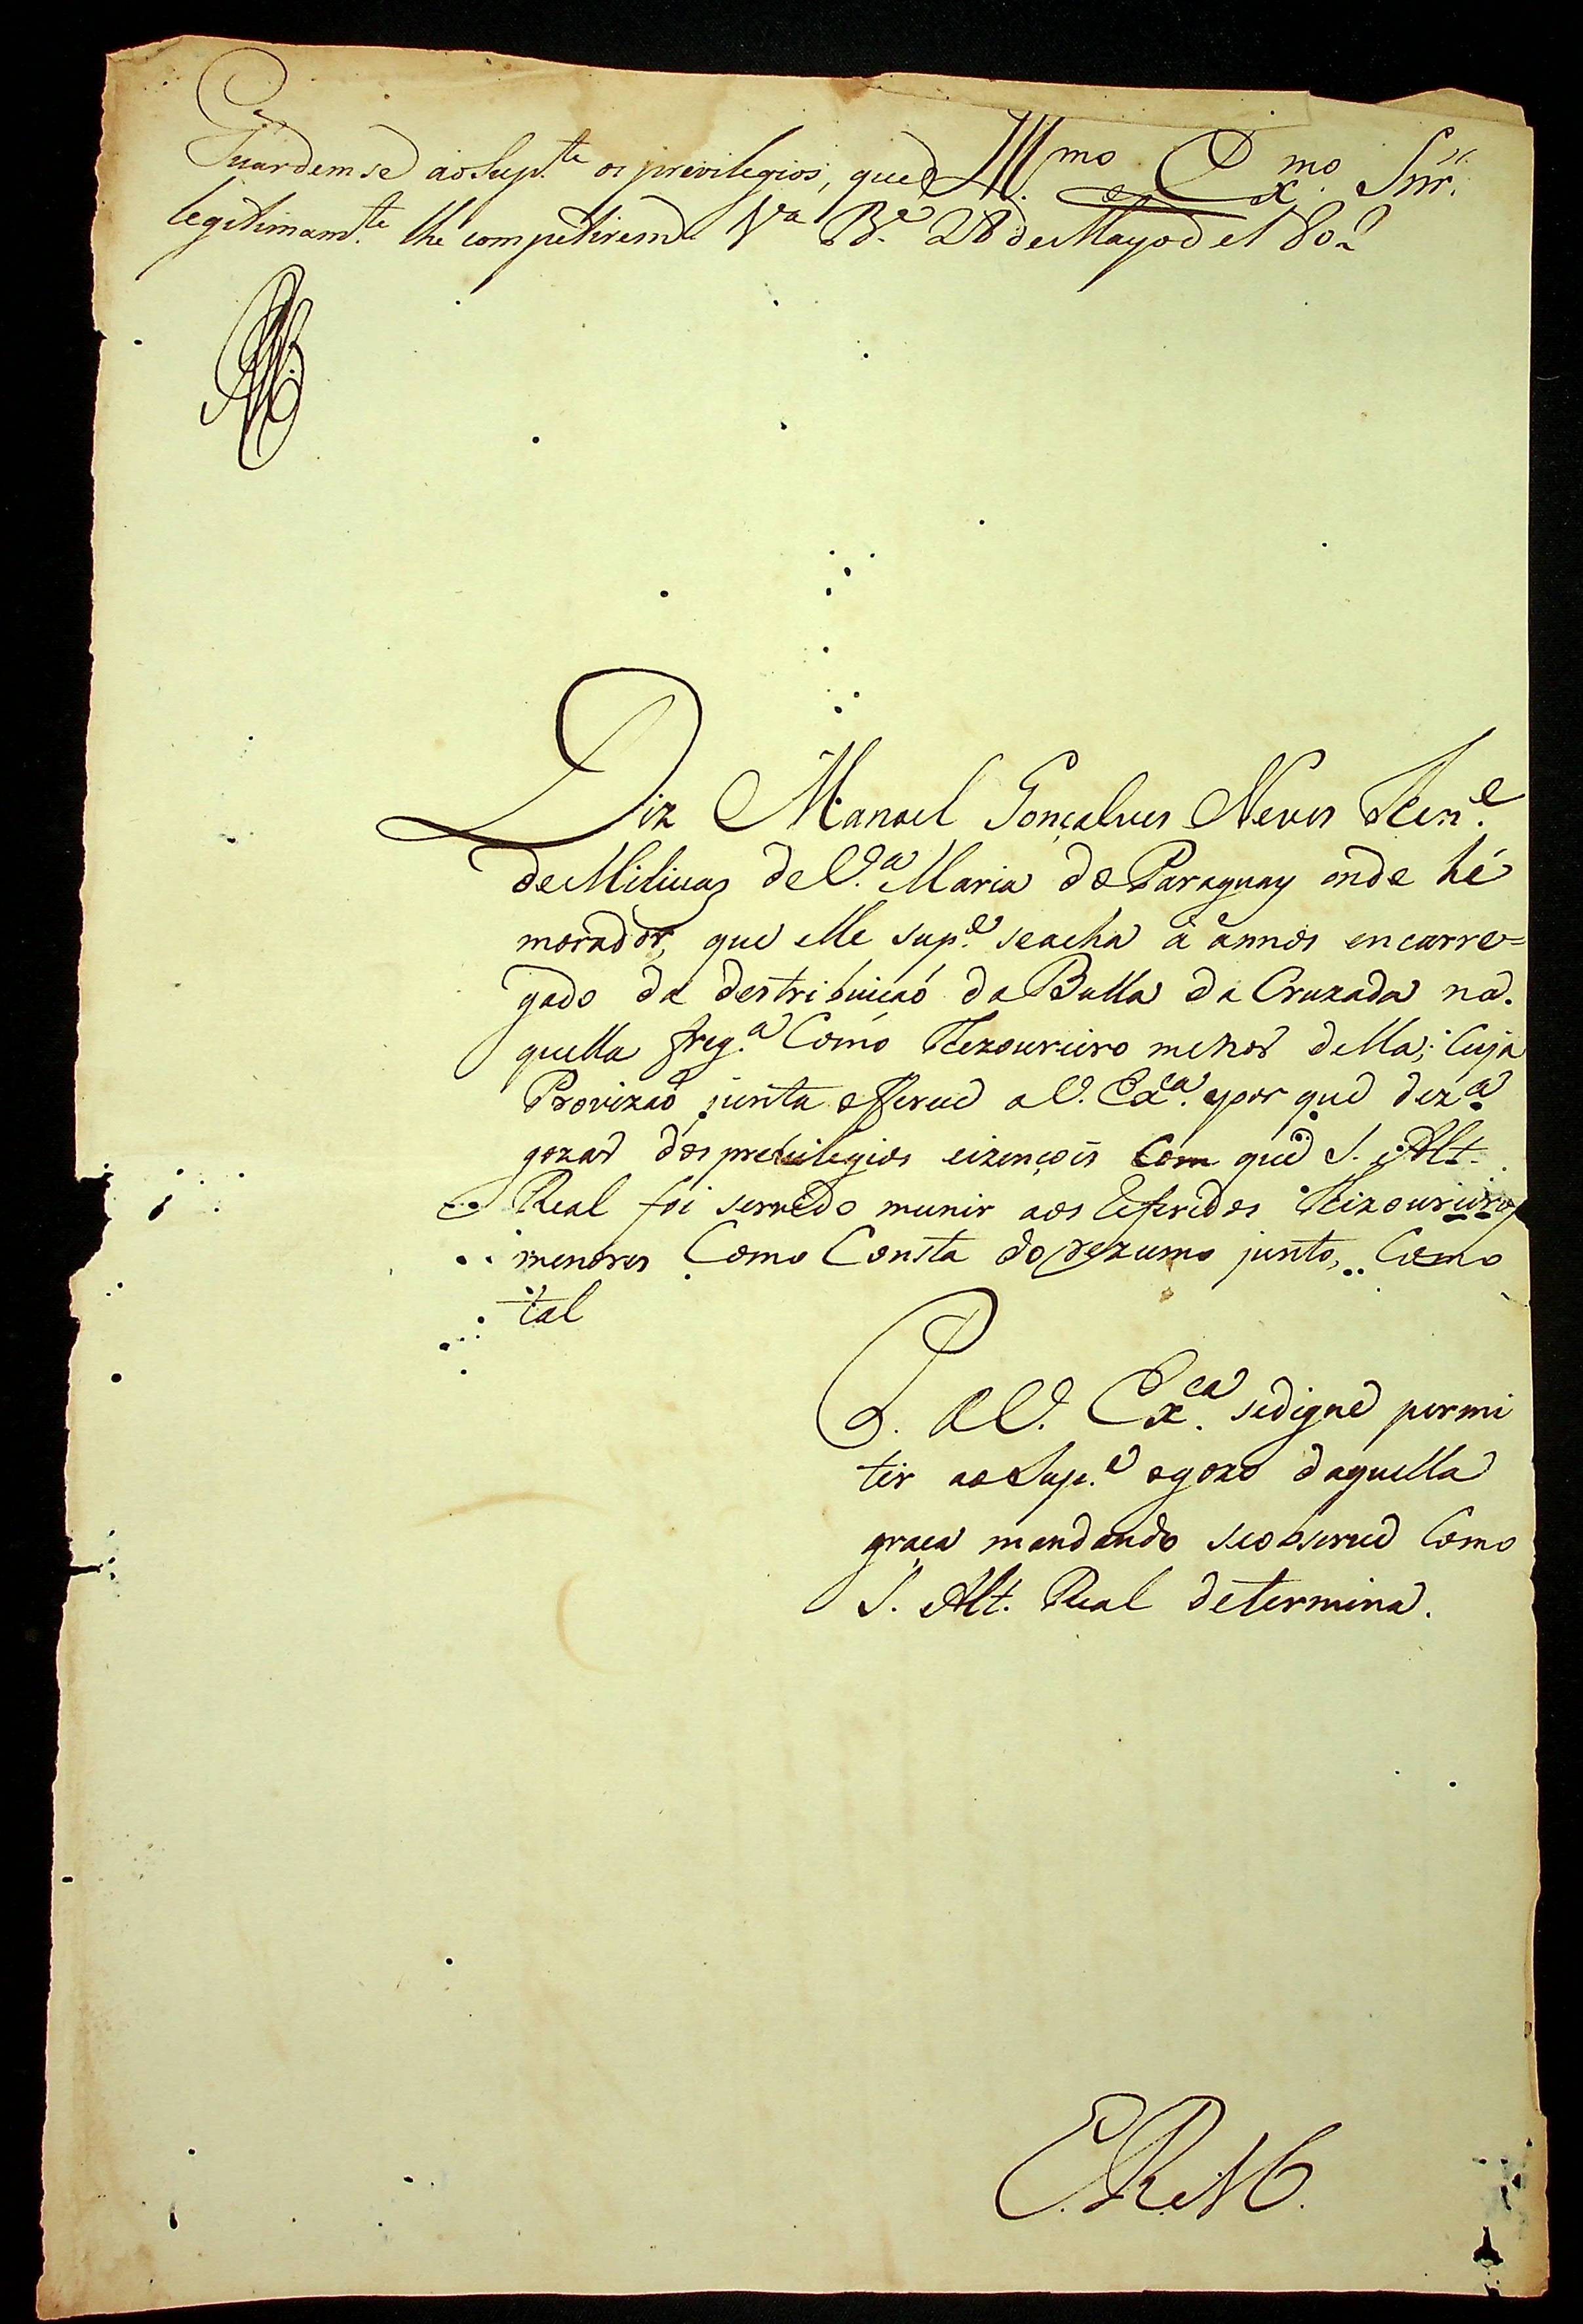 Guardem se ao Sup.te os previlegios, que Ill.mo e Ex.mo Snr.
legitimam.te lhe competirem V.a B.a 28 de Mayo de 180
Diz Manoel Gonçalves Neves Ten.e
de Milicias de V.a Maria do Paraguay onde hé
morador, que elle sup.e se acha á annos encarre=
gado da destribuicaó da Bulla da Cruzada na
quella freg.a Como Tezoureiro menor della; Cuja
Provizaó junta offerece a V. Ex.a e por que dez.a
gozar dos previlegios eizençois Com que S. Alt.
Real foi servido munir aos Referidos Teizoureiros
menores Como Consta do rezumo junto, Como
tal
P. a V. Ex.ca se digne permi
tir ao Sup.e o gozo daquella
graca mandando se observe Como
S. Alt. Real determina.
E.R.M.